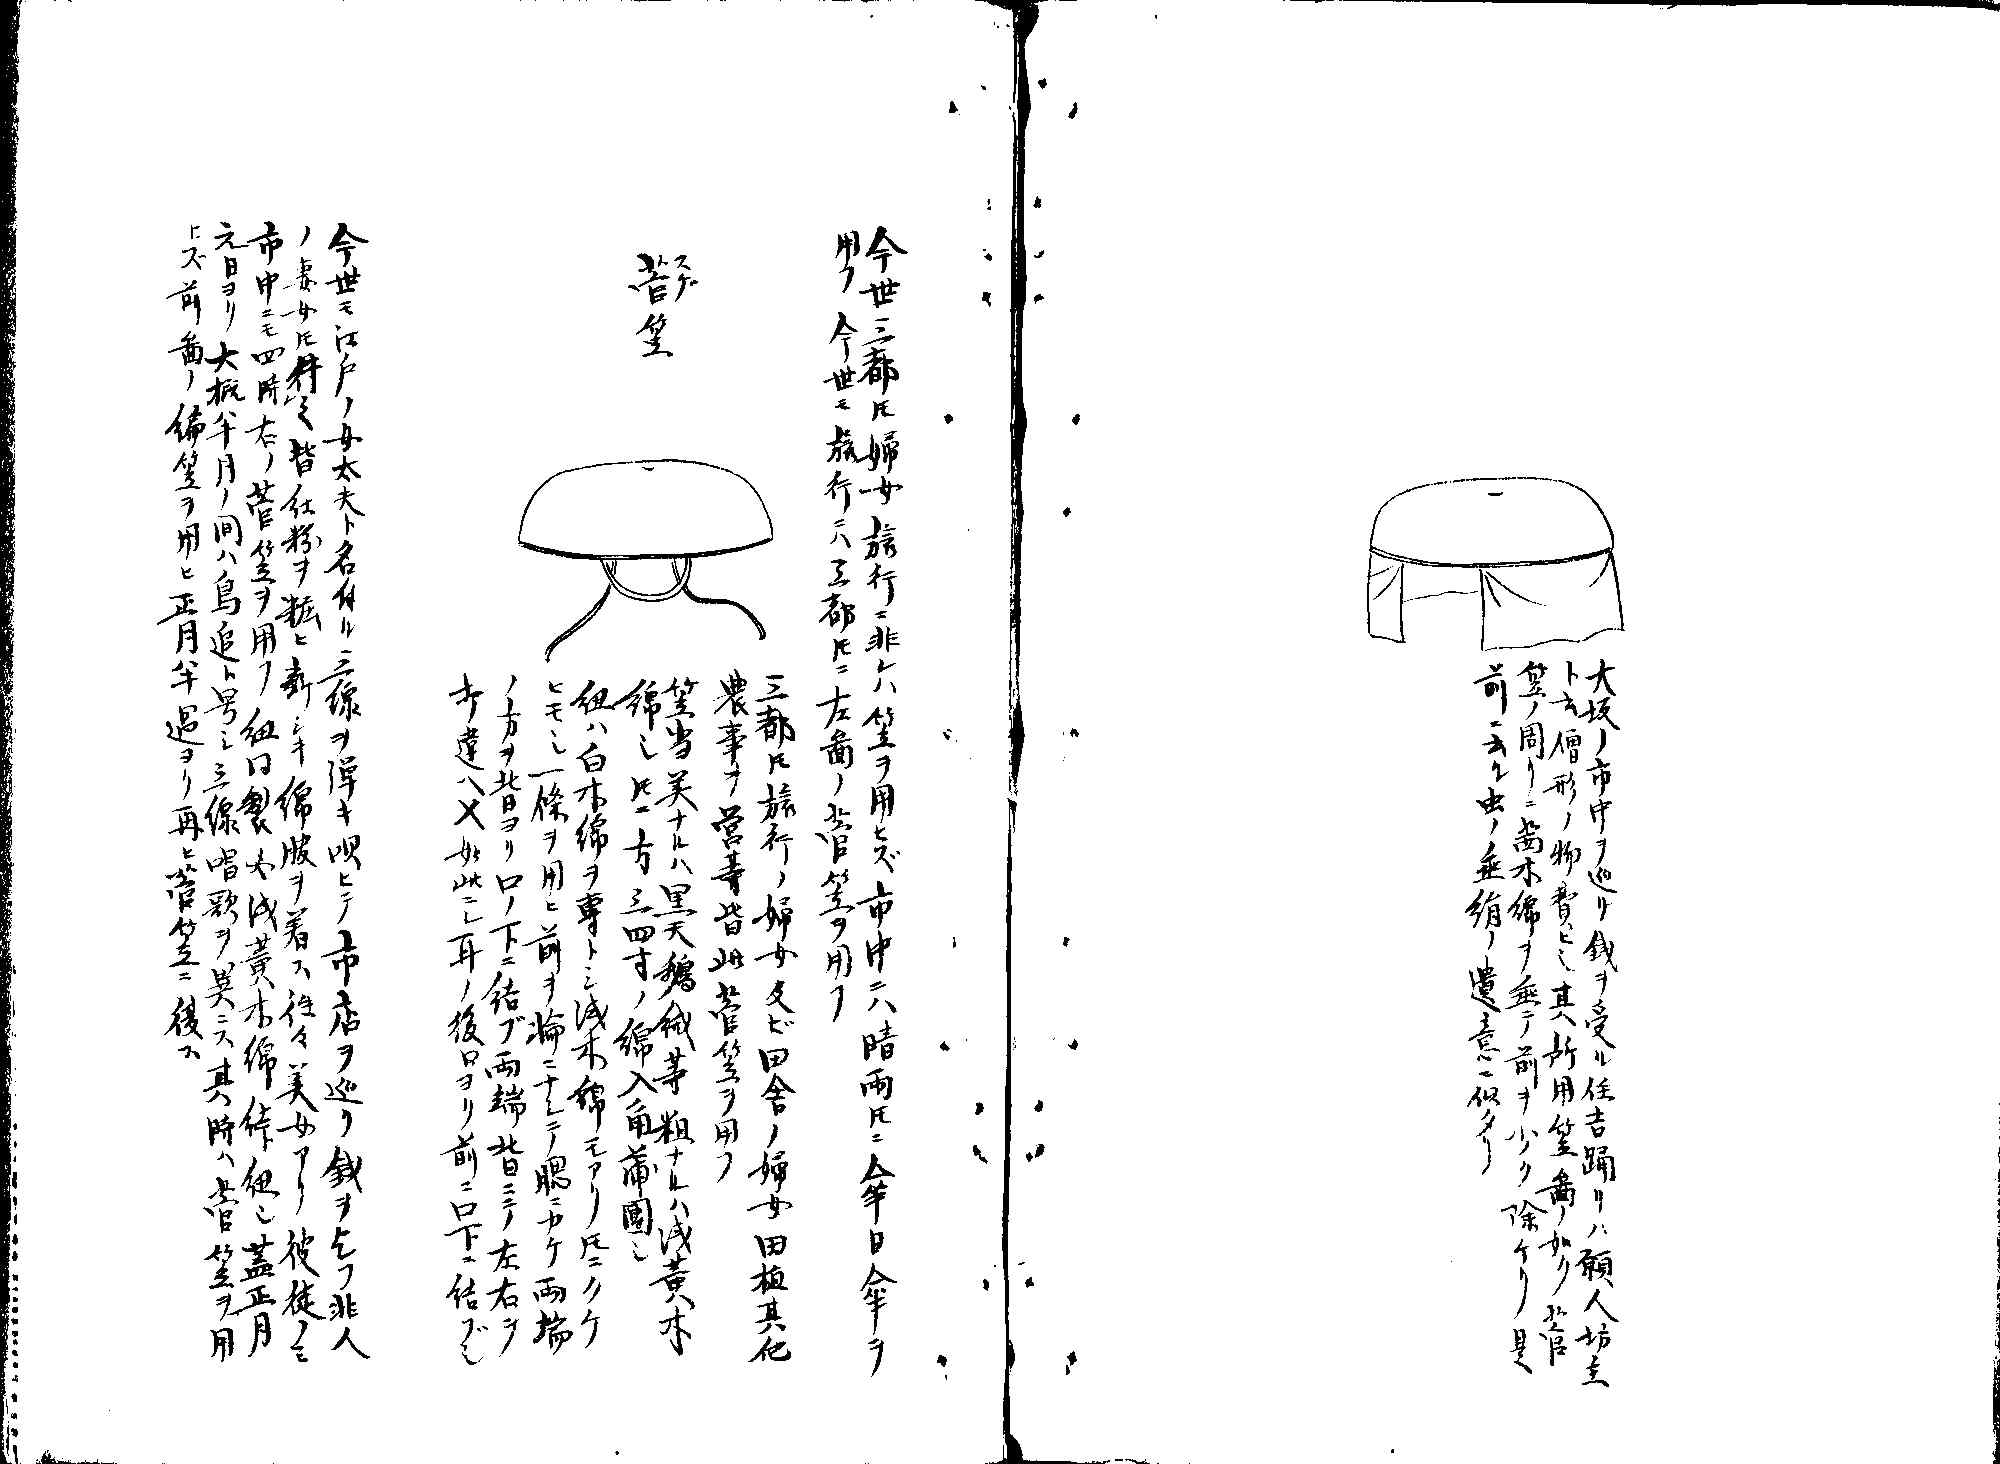 大坂ノ市中ヲ巡リ銭ヲ受ル住吉踊リハ願人坊主
ト云僧形ノ物貰ヒ也其所用笠畵ノ如ク菅
笠ノ周リニ茜木綿ヲ垂テ前ヲ少ク除ケリ是
前ニ云ル虫ノ垂絹ノ遺意ニ似タリ
今世三都トモ婦女旅行ニ非レハ笠ヲ用ヒズ市中ニハ晴雨トモニ傘日傘ヲ
用フ今世モ旅行ニハ三都トモニ左畵ノ菅笠ヲ用フ
菅笠
スゲ
三都トモ旅行ノ婦女及ビ田舎ノ婦女田植其他
農事ヲ営等皆此菅笠ヲ用フ
笠当美ナルハ黒天鵞絨等粗ナルハ浅黄木
綿也トモニ方三四寸ノ綿入角蒲團也
紐ハ白木綿ヲ専トシ浅木綿モアリトモニクケ
ヒモ也一條ヲ用ヒ前ヲ輪ニナシテ腮ニカケ両端
ノ方ヲ背ヨリ口ノ下ニ結ブ両端背ニテ左右ヲ
打違ヘ㐅如此ニシ耳ノ後ロヨリ前ニ口下ニ結ブ也
今世モ江戸ノ女太夫ト名付ル三線ヲ弾キ唄ヒテ市店ヲ巡リ銭ヲ乞フ非人
ノ妻女トモ皆仕粉ヲ粧ヒ新シキ綿服ヲ着ス往々美女アリ彼徒ノミ
市中ニモ四時右ノ菅笠ヲ用フ紐同製必浅黄木綿絎紐也蓋正月
元日ヨリ大概半月ノ間ハ鳥追ト号シ三線唱歌ヲ異ニス其時ハ菅笠ヲ用
ヒズ前畵ノ編笠ヲ用ヒ正月半過ヨリ再ヒ菅笠ニ復ス